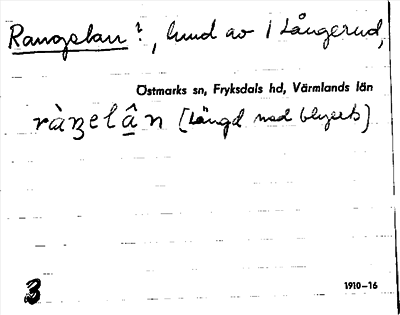 Rangelan ?, lund av 1 Långerud,
Östmarks sn, Fryksdals hd, Värmlands län
[Längd med blyerts]
3
1910-16